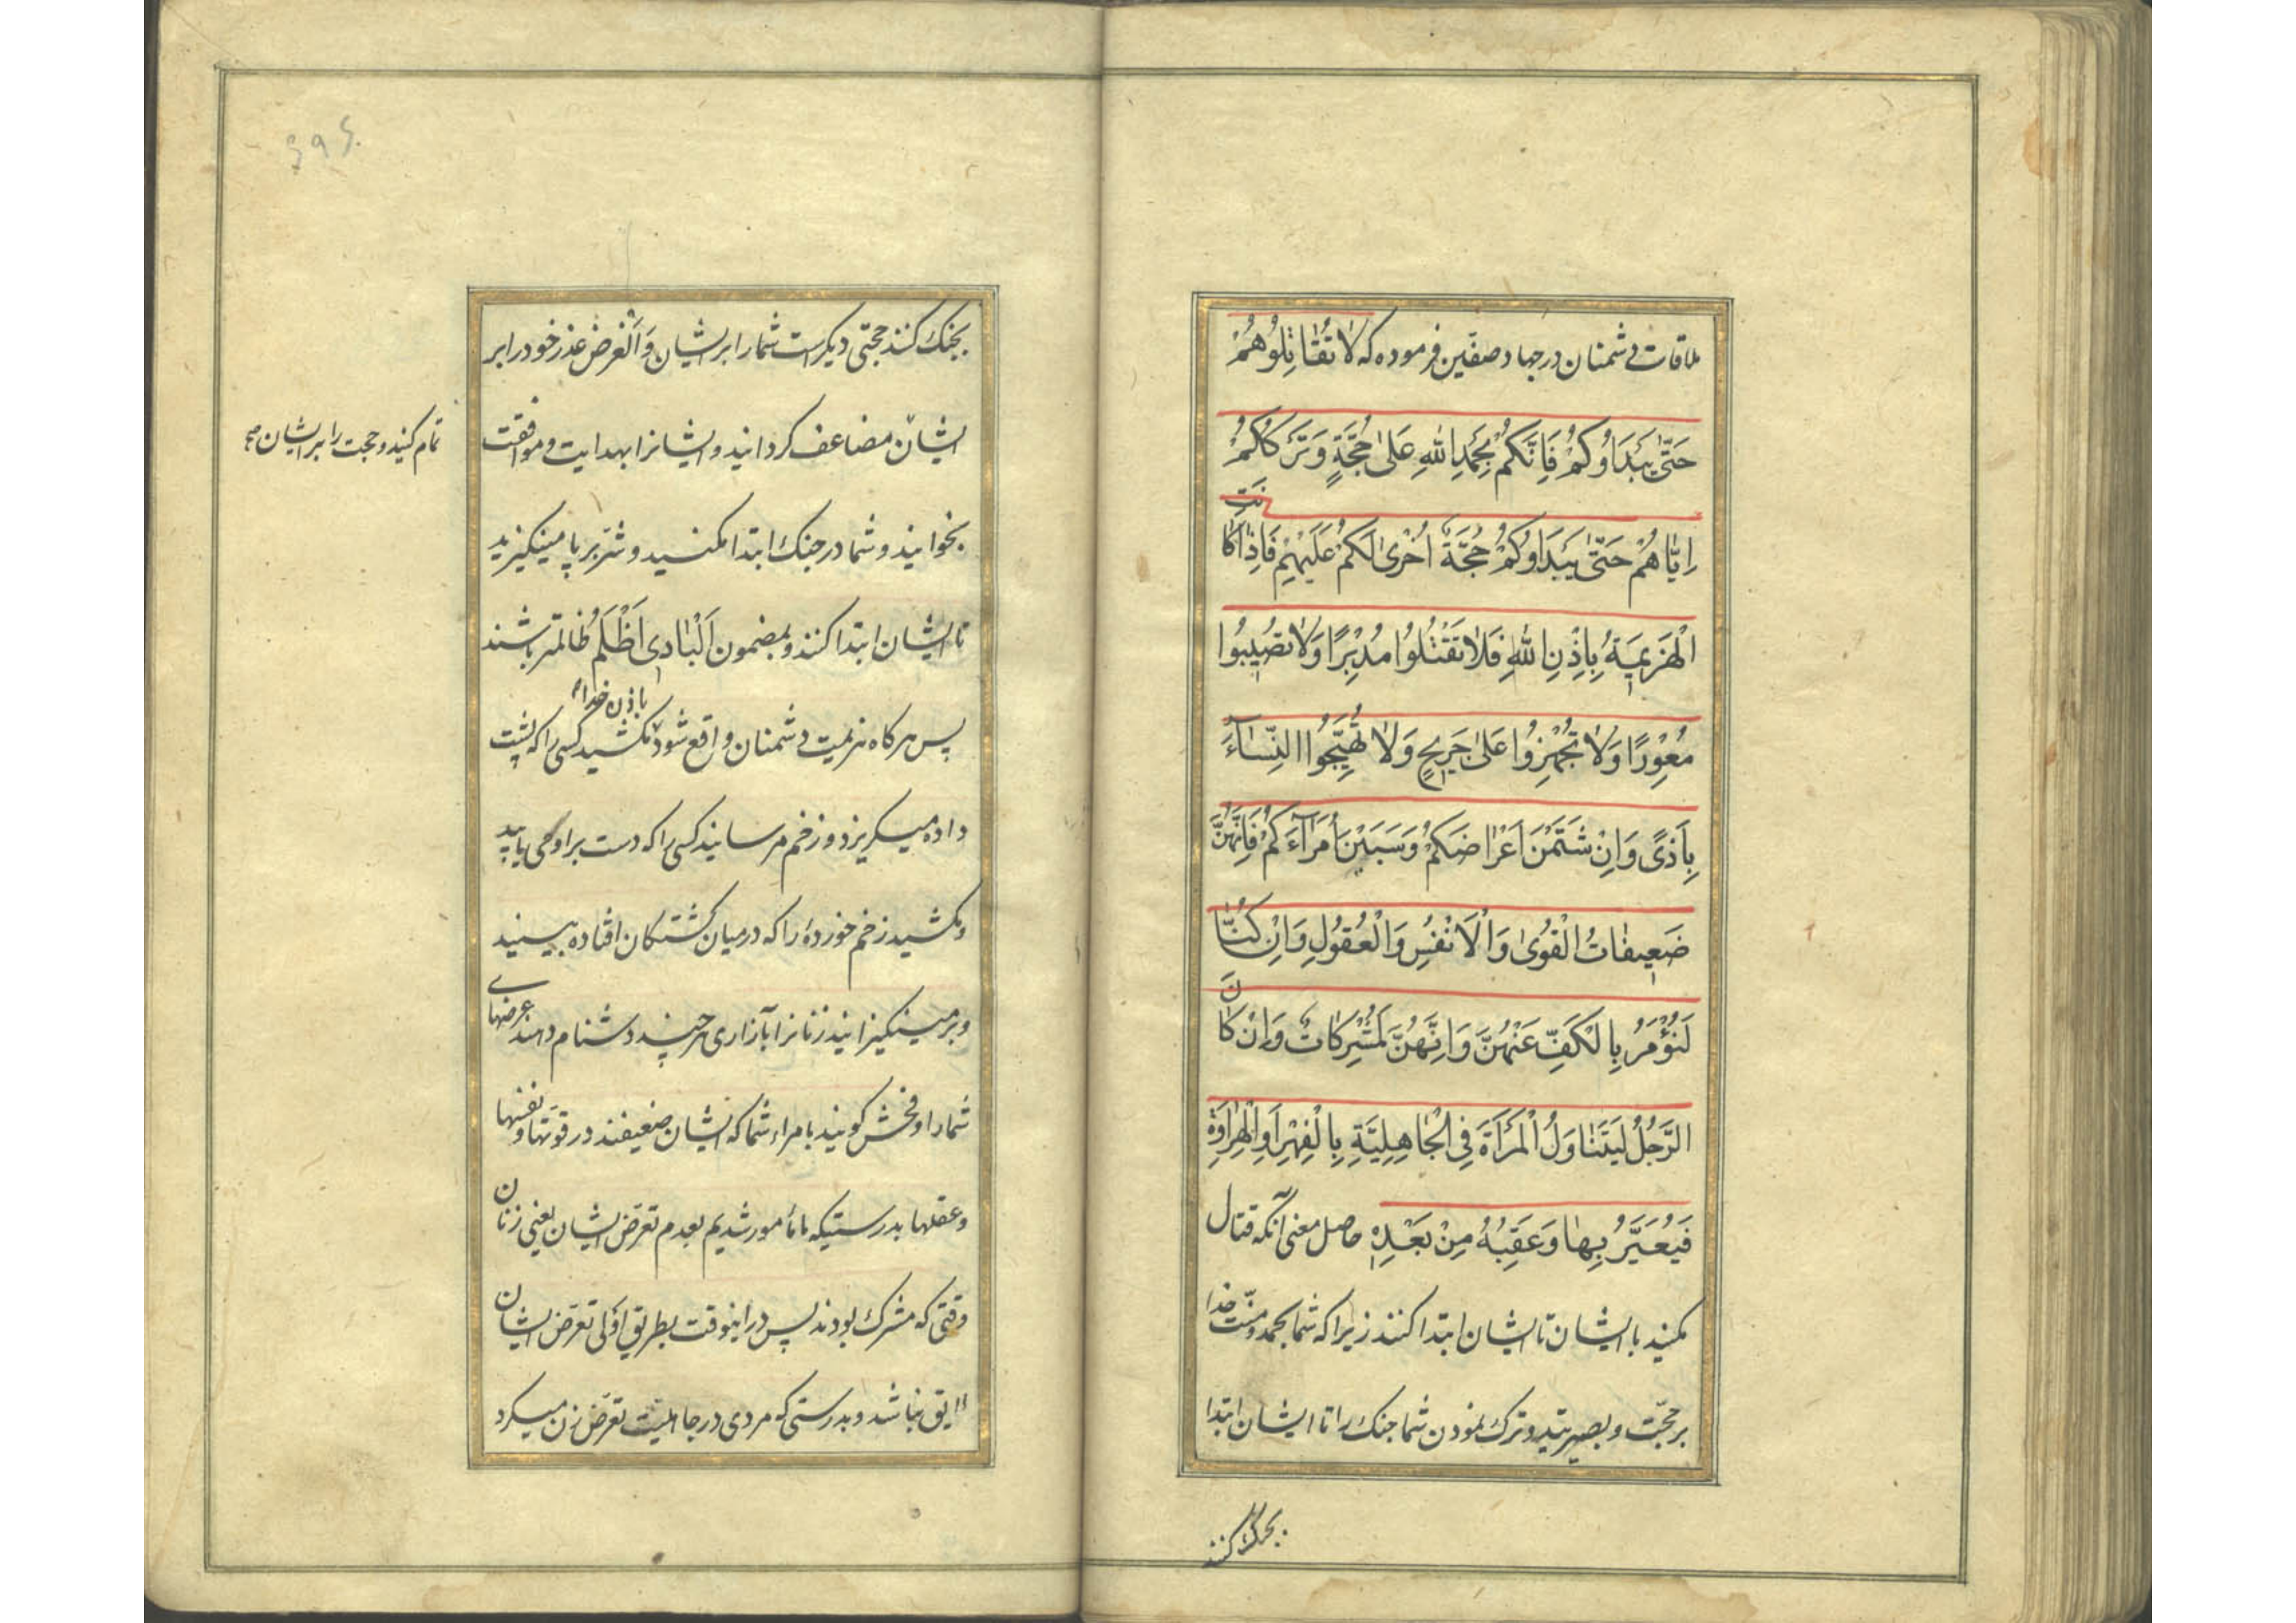 ملاقات دشمنان در جهاد صفّین فرموده که لَا تُقَاتِلُوهُمْ
حَتَّىٰ يَبْدَاُوكُمْ فَاِنَّكُمْ بِحَمْدِ اللهِ عَلىٰ حُجَّةٍ وَتَرْكُكُمْ
اِيَّاهُمْ حَتّىٰ يَبْدَاُوكُمْ حُجَّةٌ اُخْرىٰ لَكُمْ عَلَيْهِمْ فَاِذَا كَانَتِ
الْهَزِيمَةُ بِاِذْنِ اللهِ فَلَا تَقْتُلُوا مُدْبِرًا وَلَا تُصِيبُوا
مُعْوِرًا وَلَا تُجْهِزُوا عَلىٰ جَرِيحٍ وَلَا تُهَيِّجُوا النِّسَآءَ
بِاَذىً وَاِنْ شَتَمْنَ اَعْرَاضَكُمْ وَسَبَبْنَ اُمَرَآءَكُمْ فَاِنَّهُنَّ
ضَعِيفَاتُ الْقُوىٰ وَالْاَنْفُسِ وَالْعُقُولِ وَاِنْ كُنَّا
لَنُؤْمَرُ بِالْكَفِّ عَنْهُنَّ وَاِنَّهُنَّ لَمُشْرِكَاتٌ وَاِنْ كَانَ
الرَّجُلُ لَيَتَنَاوَلُ الْمَرْاَةَ فِي الْجَاهِلِيَّةِ بِالْفِهْرِ اَوِ الْهِرَاوَةِ
فَيُعَيَّرُ بِهَا وَعَقِبُهُ مِنْ بَعْدِهِ حاصل معنی آنکه قتال
مکنید با ایشان تا ایشان ابتدا کنند زیرا که شما بحمد و منّت خدا
بر حجّت و بصیرتید و ترک نمودن شما جنک را تا ایشان ابتدا
بجنک کنند
بجنک کنند حجتی دیکر است شما را بر ایشان و اَلغرض عذر خود را بر
ایشان مضاعف کردانید و ایشانرا بهدایت و موافقت
تمام کنید و حجت را بر ایشان صح
بخوانید و شما در جنک ابتدا مکنید و شرّ بر پا مینکیزید
تا ایشان ابتدا کنند و بمضمون اَلْبَادِی اَظْلَمُ ظالمتر باشند
پس هر کاه هزیمت دشمنان واقع شود باذن خدا مکشید کسی را که پشت
داده میکریزد و زخم مرسانید کسی را که دست بر او می یابید
و مکشید زخم خورده را که در میان کشتکان افتاده ببینید
و بر مینکیزانید زنانرا بآزاری هر چند دشنام دهند عرضهای
شما را و فحش کویند بامراء شما که ایشان ضعیفند در قوّتها و نفسها
و عقلها بدرستیکه ما مامور شدیم بعدم تعرّض ایشان یعنی زنان
وقتی که مشرک بودند پس در اینوقت بطریق اَولی تعرّض ایشان
لایق نباشد و بدرستی که مردی در جاهلیّت تعرّض زن میکرد